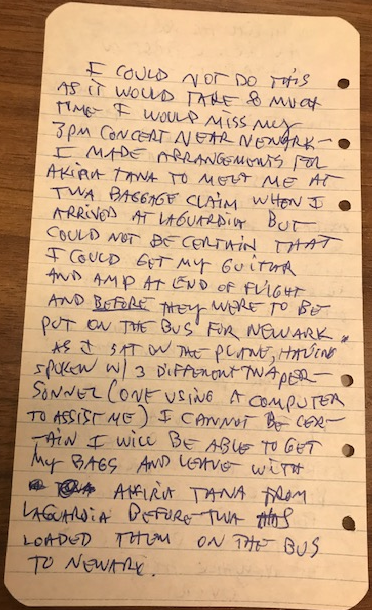 I COULD NOT DO THIS
AS IT WOULD TAKE SO MUCH
TIME I WOULD MISS MY
3PM CONCERT NEAR NEWARK—
I MADE ARRANGEMENTS FOR
AKIRA TANA TO MEET ME AT
TWA BAGGAGE CLAIM WHEN I
ARRIVED AT LAGUARDIA BUT
COULD NOT BE CERTAIN THAT
I COULD GET MY GUITAR
AND AMP AT END OF FLIGHT
AND BEFORE THEY WERE TO BE
PUT ON THE BUS FOR NEWARK.
AS I SAT ON THE PLANE, HAVING
SPOKEN W/ 3 DIFFERENT TWA PER-
SONNEL (ONE USING A COMPUTER
TO ASSIST ME) I CANNOT BE CER-
TAIN I WILL BE ABLE TO GET
MY BAGS AND LEAVE WITH
AKIRA TANA FROM
LAGUARDIA BEFORE TWA HAS
LOADED THEM ON THE BUS
TO NEWARK.